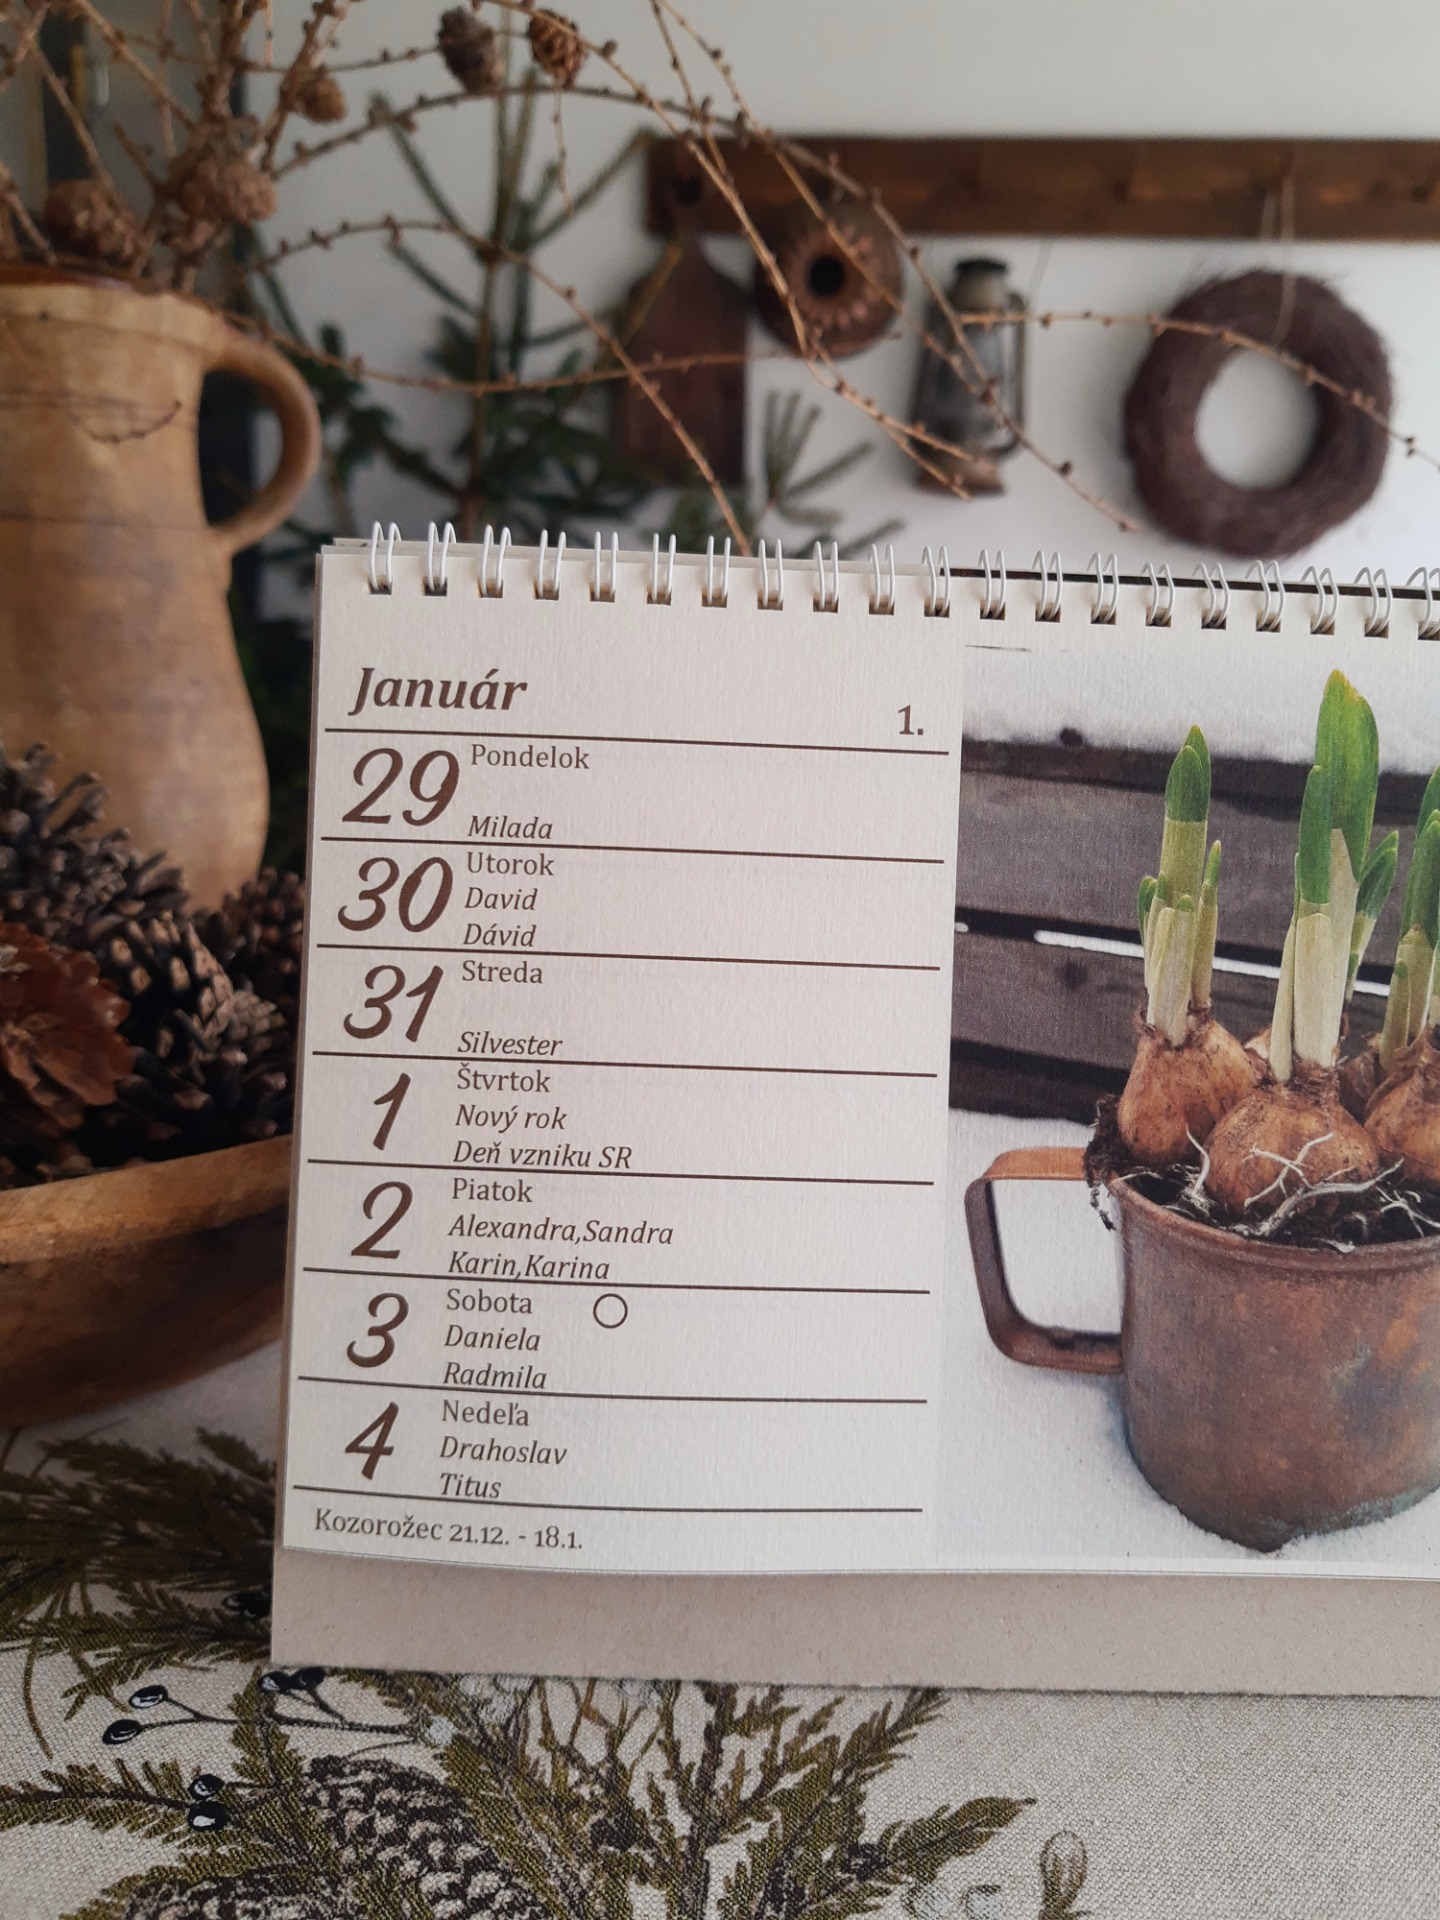 Január
1.
29 Pondelok
Milada
30 Utorok
David
Dávid
31 Streda
Silvester
1 Štvrtok
Nový rok
Deň vzniku SR
2 Piatok
Alexandra,Sandra
Karin,Karina
3 Sobota
Daniela
Radmila
4 Nedeľa
Drahoslav
Titus
Kozorožec 21.12. - 18.1.